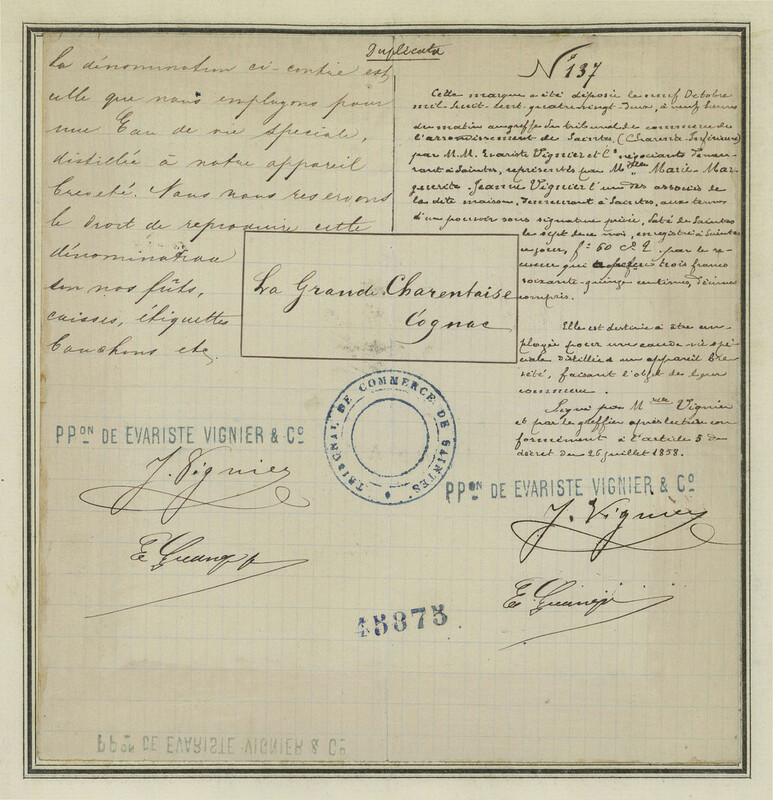 Duplicata
La dénomination ci-contre est
celle que nous employons pour
une Eau de vie spéciale,
distillée à notre appareil
breveté. Nous nous réservons
le droit de reproduire cette
dénomination
sur nos fûts,
caisses, étiquettes
bouchons etc.
PPon DE EVARISTE VIGNIER & Co
J. Vignier
La Grande Charentaise
Cognac
TRIBUNAL DE COMMERCE DE SAINTES
No 137
Cette marque a été déposée le neuf Octobre
mil huit cent quatre vingt deux, à neuf heures
du matin au greffe du tribunal de commerce de
l'arrondissement de Saintes, (Charente Inférieure)
par M.M. Evariste Vignier et Cie négociants demeu-
rant à Saintes, représentés par Melle Marie-Mar-
guerite-Jeanne Vignier l'un des associés de
la dite maison, demeurant à Saintes, aux termes
d'un pouvoir sous signature privée, daté de Saintes
le sept de ce mois, enregistré à Saintes
ce jour, fo 60 Co 2, par le re-
ceveur qui a perçu trois francs
soixante-quinze centimes, décimes
compris.
Elle est destinée à être em-
ployée pour une eau de vie spé-
ciale distillée à un appareil bre-
veté, faisant l'objet de leur
commerce.
Signé par Melle Vignier
et par le greffier après lecture con
formément à l'article 5 du
décret du 26 juillet 1858.
PPon DE EVARISTE VIGNIER & Co
J. Vignier
45875
PPon DE EVARISTE VIGNIER & Co